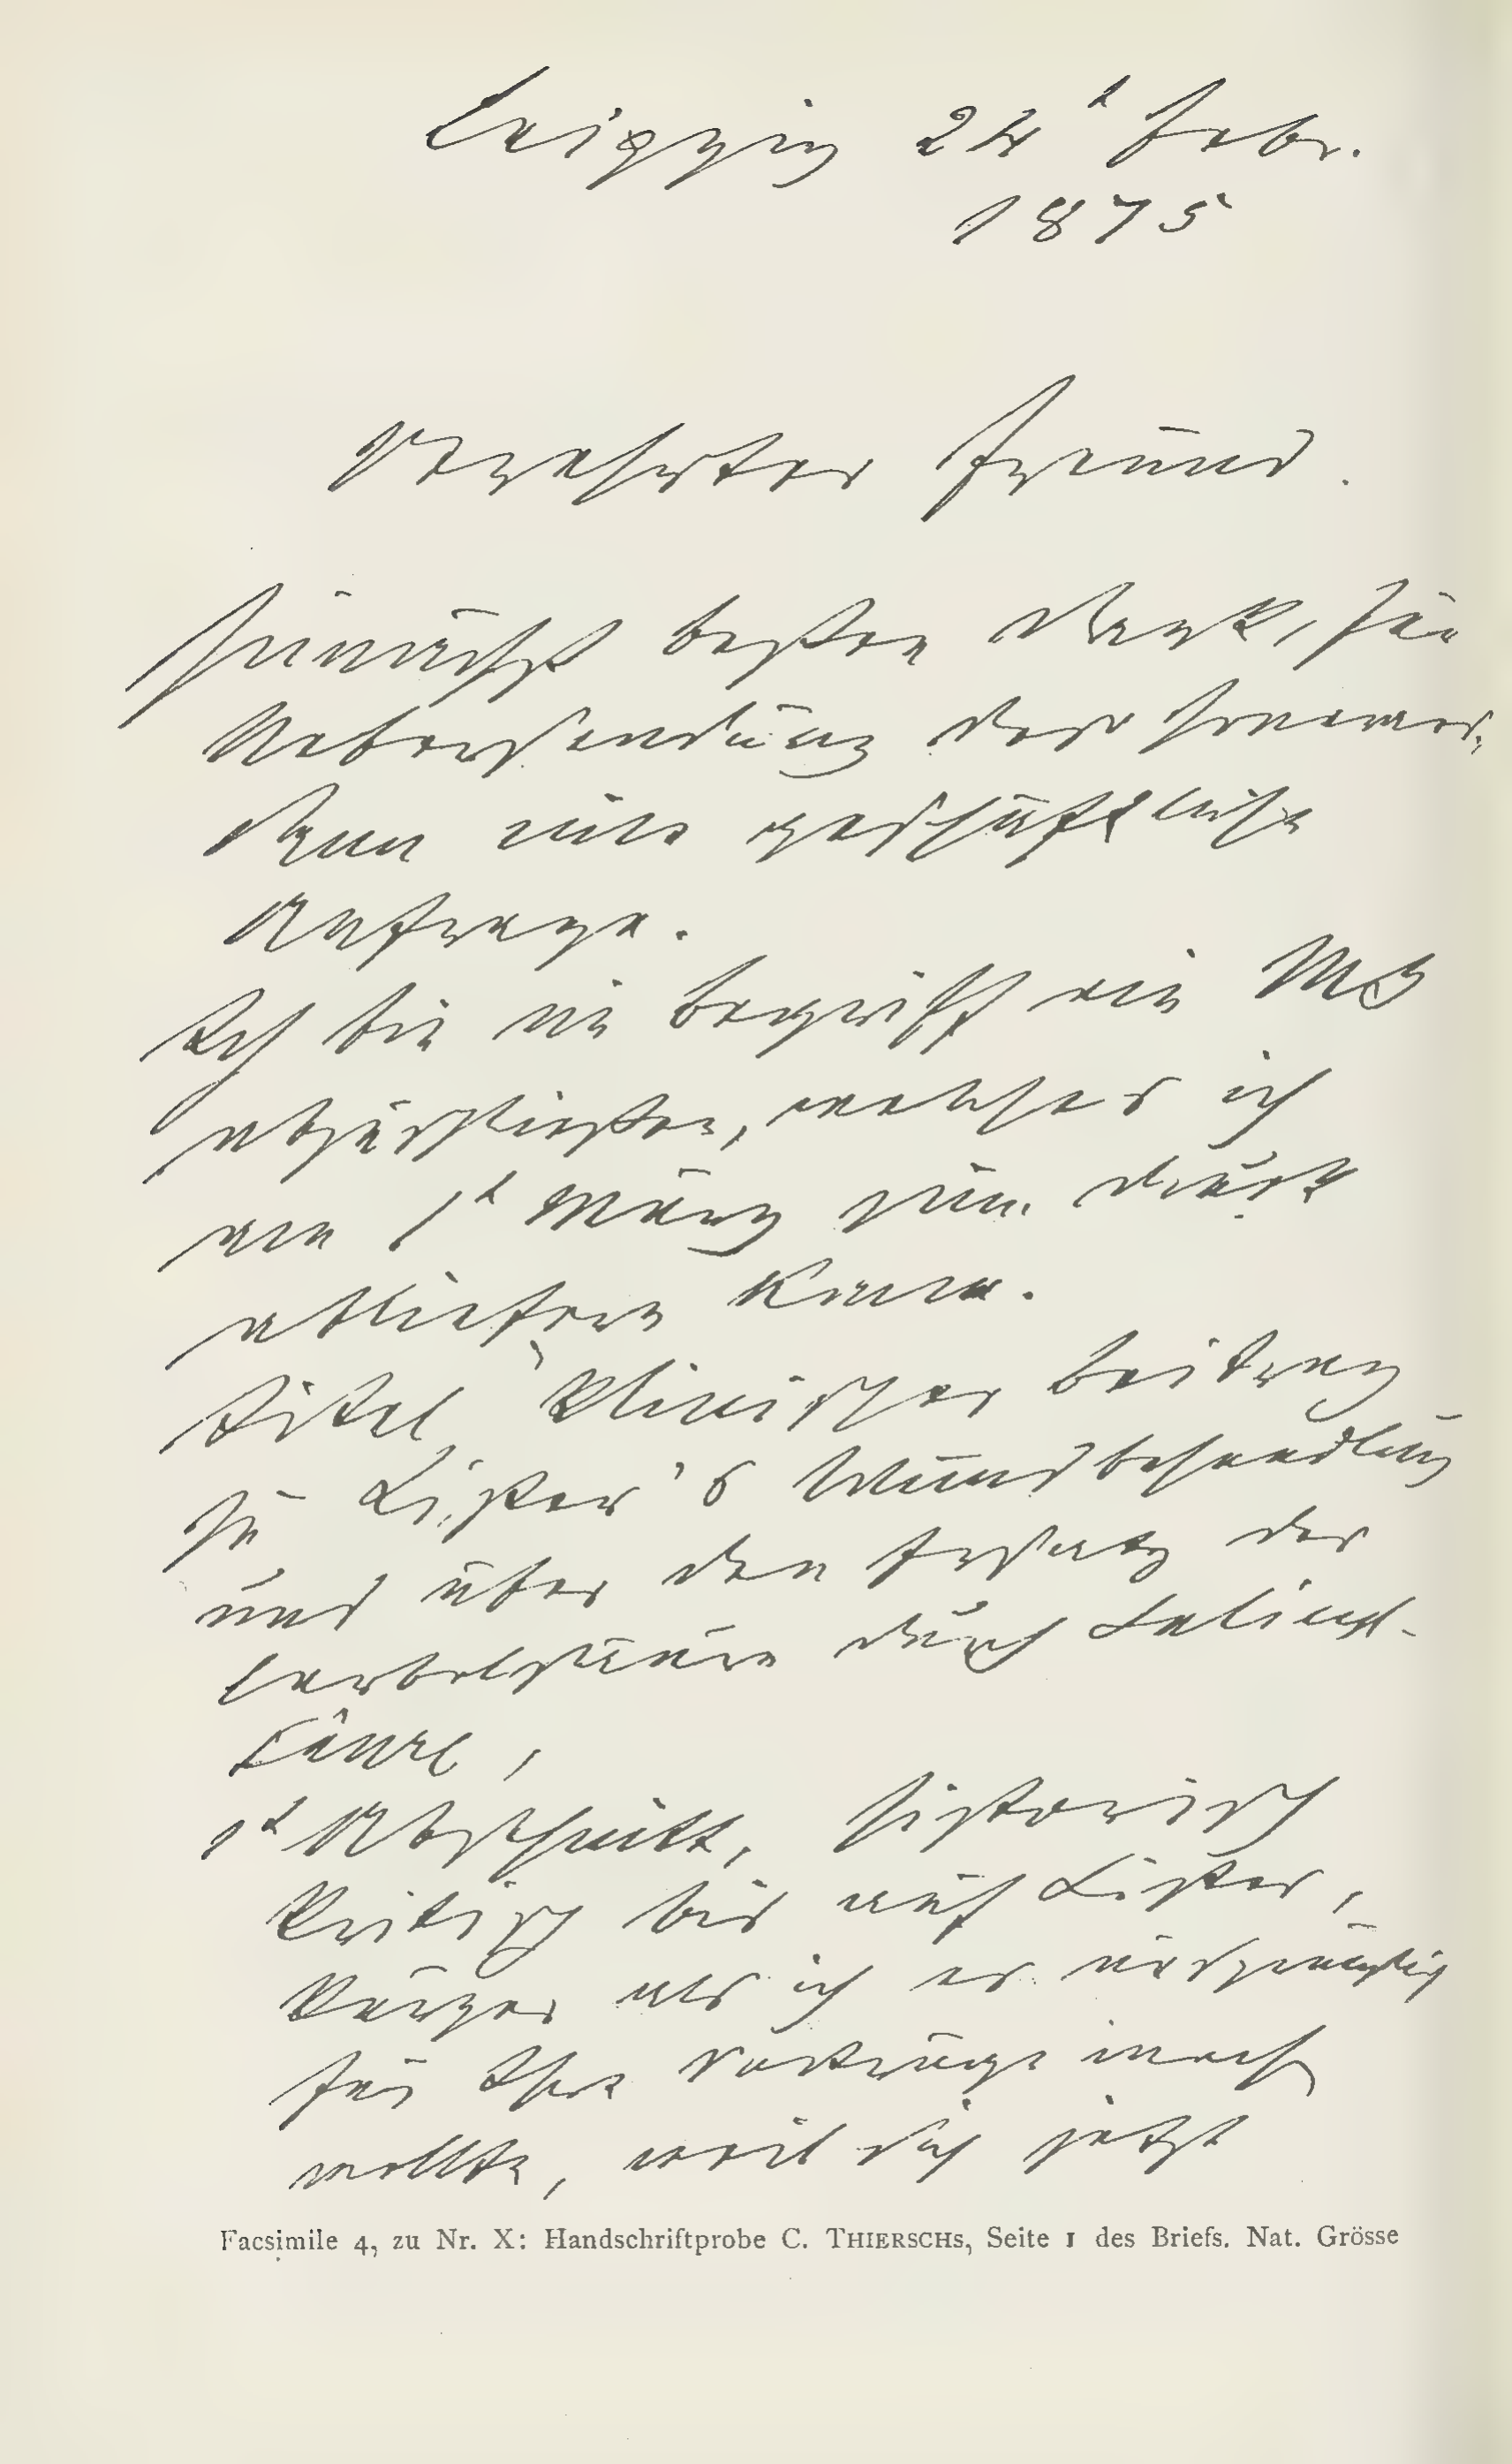 Leipzig 24t Febr.
1875
Verehrter Freund.
Zunächst besten Dank, für
Uebersendung des Honorars.
Dann eine geschäftliche
Anfrage.
Ich bin im Begriff ein MS
abzuschließen, welches ich
am 1t März zum Druck
abliefern kann.
Titel, Klinischer Beitrag
zu Lister's Wundbehandlung
und über den Ersatz der
Carbolsäure durch Salicyl-
säure,
1t Abschnitt, historisch
kritisch bis auf Lister,
kürzer als ich es ursprünglich
für Ihre Vorträge machen
wollte, weil sich jetzt
Facsimile 4, zu Nr. X: Handschriftprobe C. THIERSCHs, Seite 1 des Briefs. Nat. Grösse